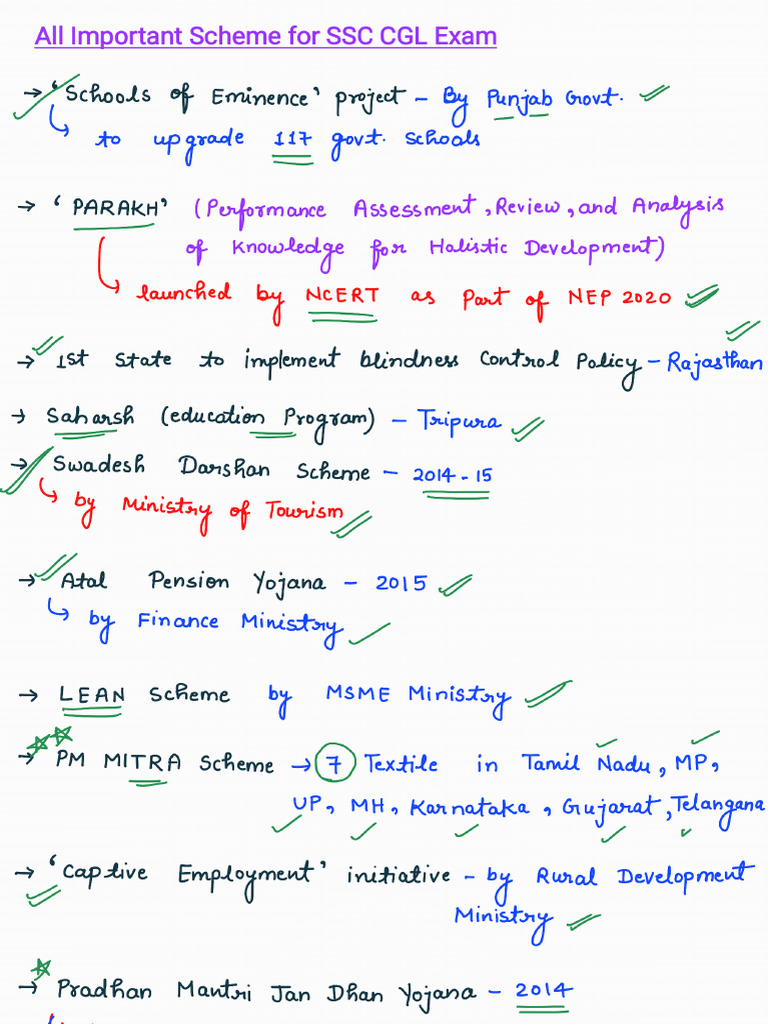 All Important Scheme for SSC CGL Exam
→ 'Schools of Eminence' project - By Punjab Govt.
to upgrade 117 govt. schools
→ 'PARAKH' (Performance Assessment, Review, and Analysis
of Knowledge for Holistic Development)
launched by NCERT as Part of NEP 2020
→ 1st State to implement blindness Control Policy - Rajasthan
→ Saharsh (education Program) - Tripura
→ Swadesh Darshan Scheme - 2014-15
by Ministry of Tourism
→ Atal Pension Yojana - 2015
by Finance Ministry
→ LEAN Scheme by MSME Ministry
→ PM MITRA Scheme → 7 Textile in Tamil Nadu, MP,
UP, MH, Karnataka, Gujarat, Telangana
→ 'Captive Employment' initiative - by Rural Development
Ministry
→ Pradhan Mantri Jan Dhan Yojana - 2014